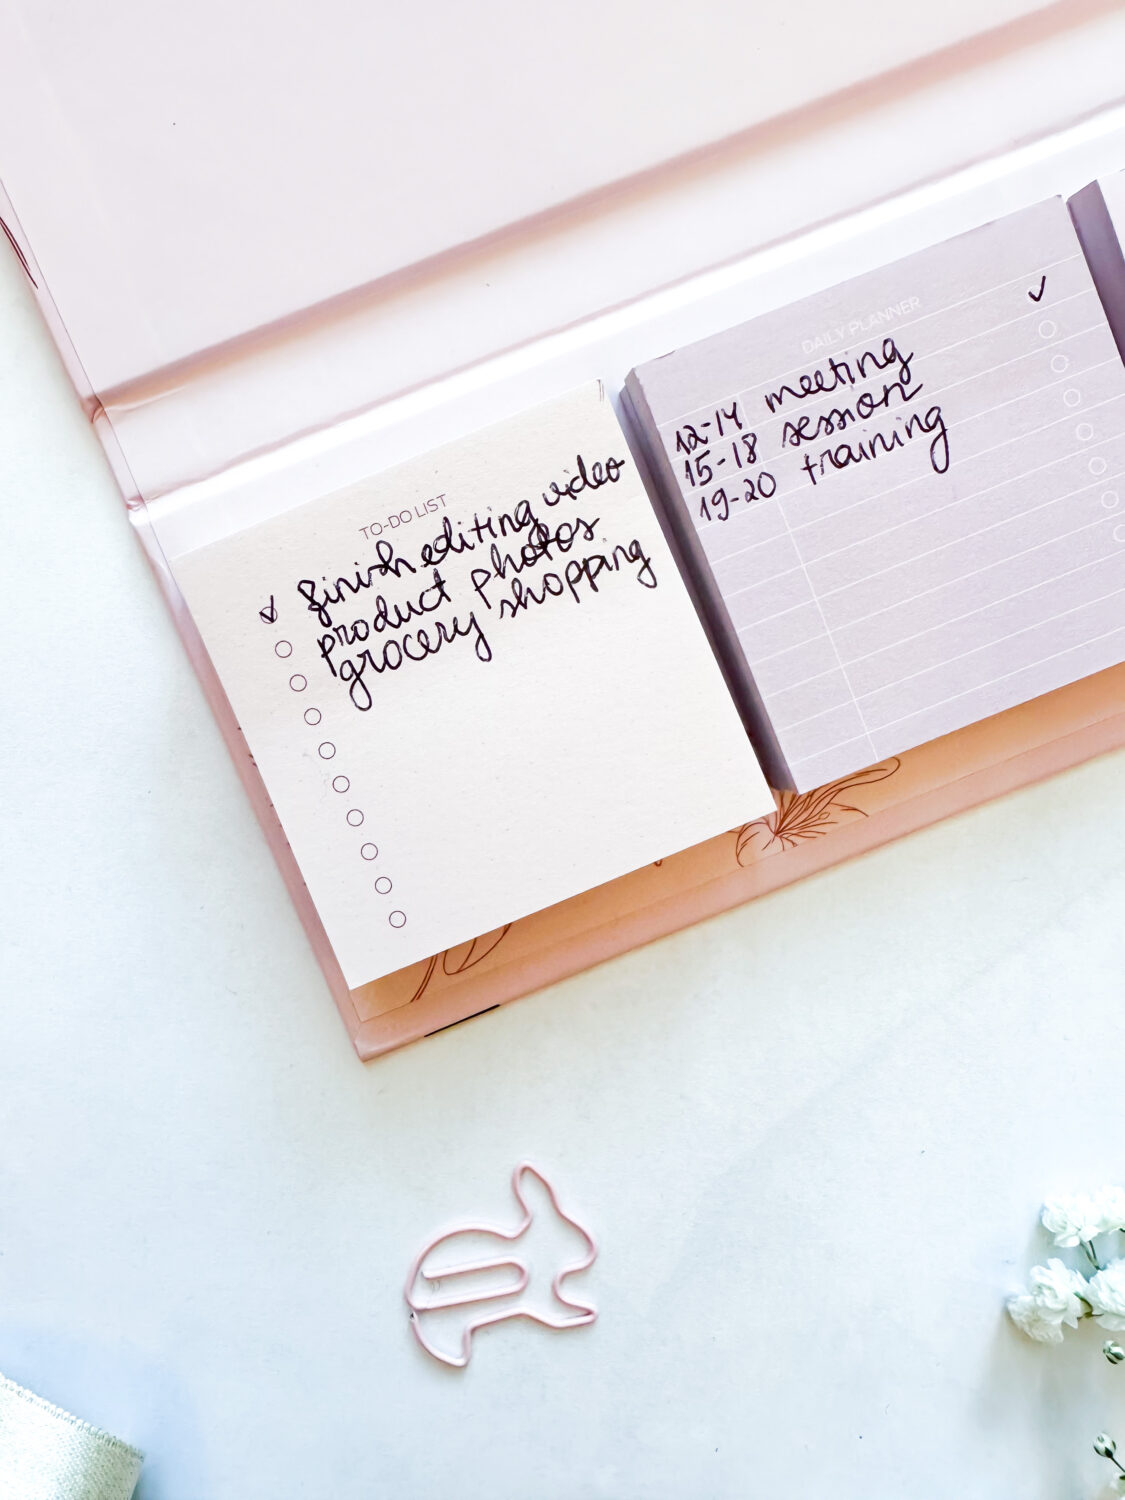 TO-DO LIST
finish editing video
product photos
grocery shopping
DAILY PLANNER
12-14 meeting
15-18 session
19-20 training